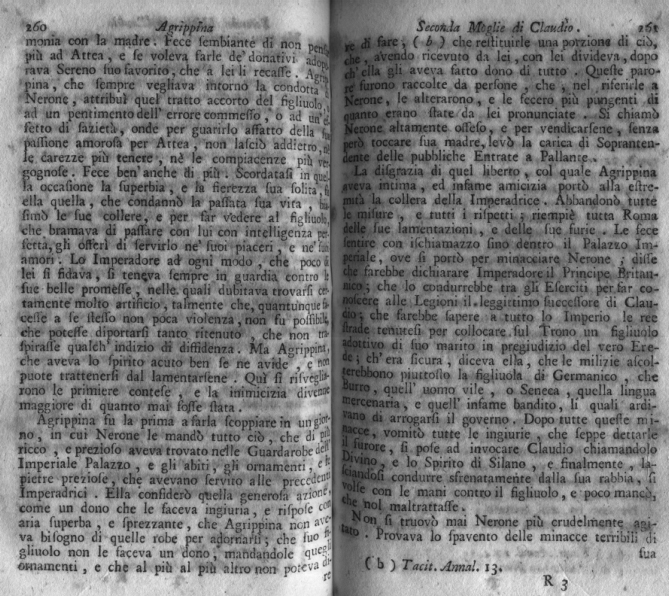 260 Agrippina
monia con la madre. Fece ſembiante di non penſar
più ad Attea, e ſe voleva farle de' donativi adope
rava Sereno ſuo favorito, che a lei li recaſſe. Agrip
pina, che ſempre vegliava intorno la condotta di
Nerone, attribuì quel tratto accorto del figliuolo,
ad un pentimento dell' errore commeſſo, o ad un ef
fetto di ſazietà, onde per guarirlo affatto della
paſſione amoroſa per Attea, non laſciò addietro, nè
le carezze più tenere, nè le compiacenze più ver
gognoſe. Fece ben'anche di più. Scordataſi in quel
la occaſione la ſuperbia, e la fierezza ſua ſolita,
ella quella, che condannò la paſſata ſua vita, biaſimò
ſimò le ſue collere, e per far vedere al figliuolo,
che bramava di paſſare con lui con intelligenza per
fetta, gli offerì di ſervirlo ne' ſuoi piaceri, e ne' ſuoi
amori. Lo Imperadore ad ogni modo, che poco di
lei ſi fidava, ſi teneva ſempre in guardia contro le
ſue belle promeſſe, nelle quali dubitava trovarſi cer
tamente molto artificio, talmente che, quantunque fa
ceſſe a ſe ſteſſo non poca violenza, non fu poſſibile,
che poteſſe diportarſi tanto ritenuto, che non tra
ſpiraſſe qualch' indizio di diffidenza. Ma Agrippina,
che aveva lo ſpirito acuto ben ſe ne avide, e non
puote trattenerſi dal lamentarſene. Quì ſi riſveglia
rono le primiere conteſe, e la inimicizia divenne
maggiore di quanto mai foſſe ſtata.
Agrippina fu la prima a farla ſcoppiare in un gior
no, in cui Nerone le mandò tutto ciò, che di più
ricco, e prezioſo aveva trovato nelle Guardarobe dell'
Imperiale Palazzo, e gli abiti, gli ornamenti, e le
pietre prezioſe, che avevano ſervito alle precedenti
Imperadrici. Ella conſiderò quella generoſa azione,
come un dono che le faceva ingiuria, e riſpoſe con
aria ſuperba, e ſprezzante, che Agrippina non ave
va biſogno di quelle robe per adornarſi; che ſuo fi
gliuolo non le faceva un dono, mandandole quegli
ornamenti, e che al più al più altro non poteva di
re
Seconda Moglie di Claudio. 261
re di fare; (b) che reſtituirle una porzione di ciò,
che, avendo ricevuto da lei, con lei divideva, dopo
ch' ella gli aveva fatto dono di tutto. Queſte paro
le furono raccolte da perſone, che, nel riferirle a
Nerone, le alterarono, e le fecero più pungenti di
quanto erano ſtate da lei pronunciate. Si chiamò
Nerone altamente offeſo, e per vendicarſene, ſenza
però toccare ſua madre, levò la carica di Sopranten
dente delle pubbliche Entrate a Pallante.
La diſgrazia di quel liberto, col quale Agrippina
aveva intima, ed infame amicizia portò alla eſtre
mità la collera della Imperadrice. Abbandonò tutte
le miſure, e tutti i riſpetti; riempiè tutta Roma
delle ſue lamentazioni, e delle ſue furie. Le fece
ſentire con iſchiamazzo ſino dentro il Palazzo Im
periale, ove ſi portò per minacciare Nerone; diſſe
che farebbe dichiarare Imperadore il Principe Britan
nico; che lo condurrebbe tra gli Eſerciti per far co
noſcere alle Legioni il leggittimo ſucceſſore di Clau
dio; che farebbe ſapere a tutto lo Imperio le ree
ſtrade tenuteſi per collocare ſul Trono un figliuolo
adottivo di ſuo marito in pregiudizio del vero Ere
de; ch'era ſicura, diceva ella, che le milizie aſcol
terebbono piuttoſto la figliuola di Germanico, che
Burro, quell' uomo vile, o Seneca, quella lingua
mercenaria, e quell' infame bandito, li quali ardi
vano di arrogarſi il governo. Dopo tutte queſte mi
nacce, vomitò tutte le ingiurie, che ſeppe dettarle
il furore, ſi poſe ad invocare Claudio chiamandolo
Divino, e lo Spirito di Silano, e finalmente, la
ſciandoſi condurre sfrenatamente dalla ſua rabbia, ſi
volſe con le mani contro il figliuolo, e poco mancò,
che nol maltrattaſſe.
Non ſi truovò mai Nerone più crudelmente agi
tato. Provava lo ſpavento delle minacce terribili di
ſua
(b) Tacit. Annal. 13.
R 3